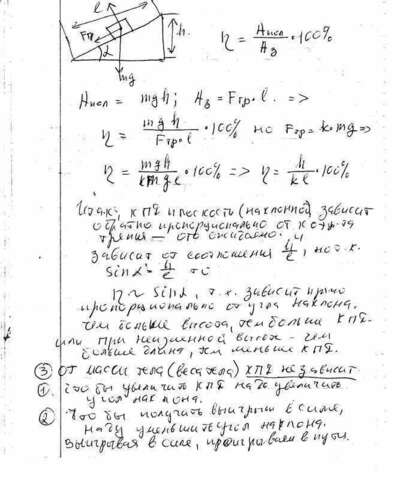 l
Fтр
h
α
mg
η = Aпол/Aз · 100%
Aпол = mgh; Aз = Fтр · l. =>
η = mgh/Fтр·l · 100% но Fтр = k·mg =>
η = mgh/kmgl · 100% => η = h/kl · 100%
Итак, КПД плоскость (наклонной) зависит
обратно пропорционально от коэф-та
трения — это ожидаемо. и
зависит от соотношения h/l, но т.к.
sinα = h/l то
η ~ sinα, т.к. зависит прямо
пропорционально от угла наклона.
Чем больше высота, тем больше КПД.
или при неизменной высоте - чем
больше длина, тем меньше КПД.
③ от массы тела (веса тела) КПД не зависит
①. Что бы увеличить КПД надо увеличить
угол наклона.
② Что бы получить выигрыш в силе,
надо уменьшить угол наклона.
Выигрывая в силе, проигрываем в пути.